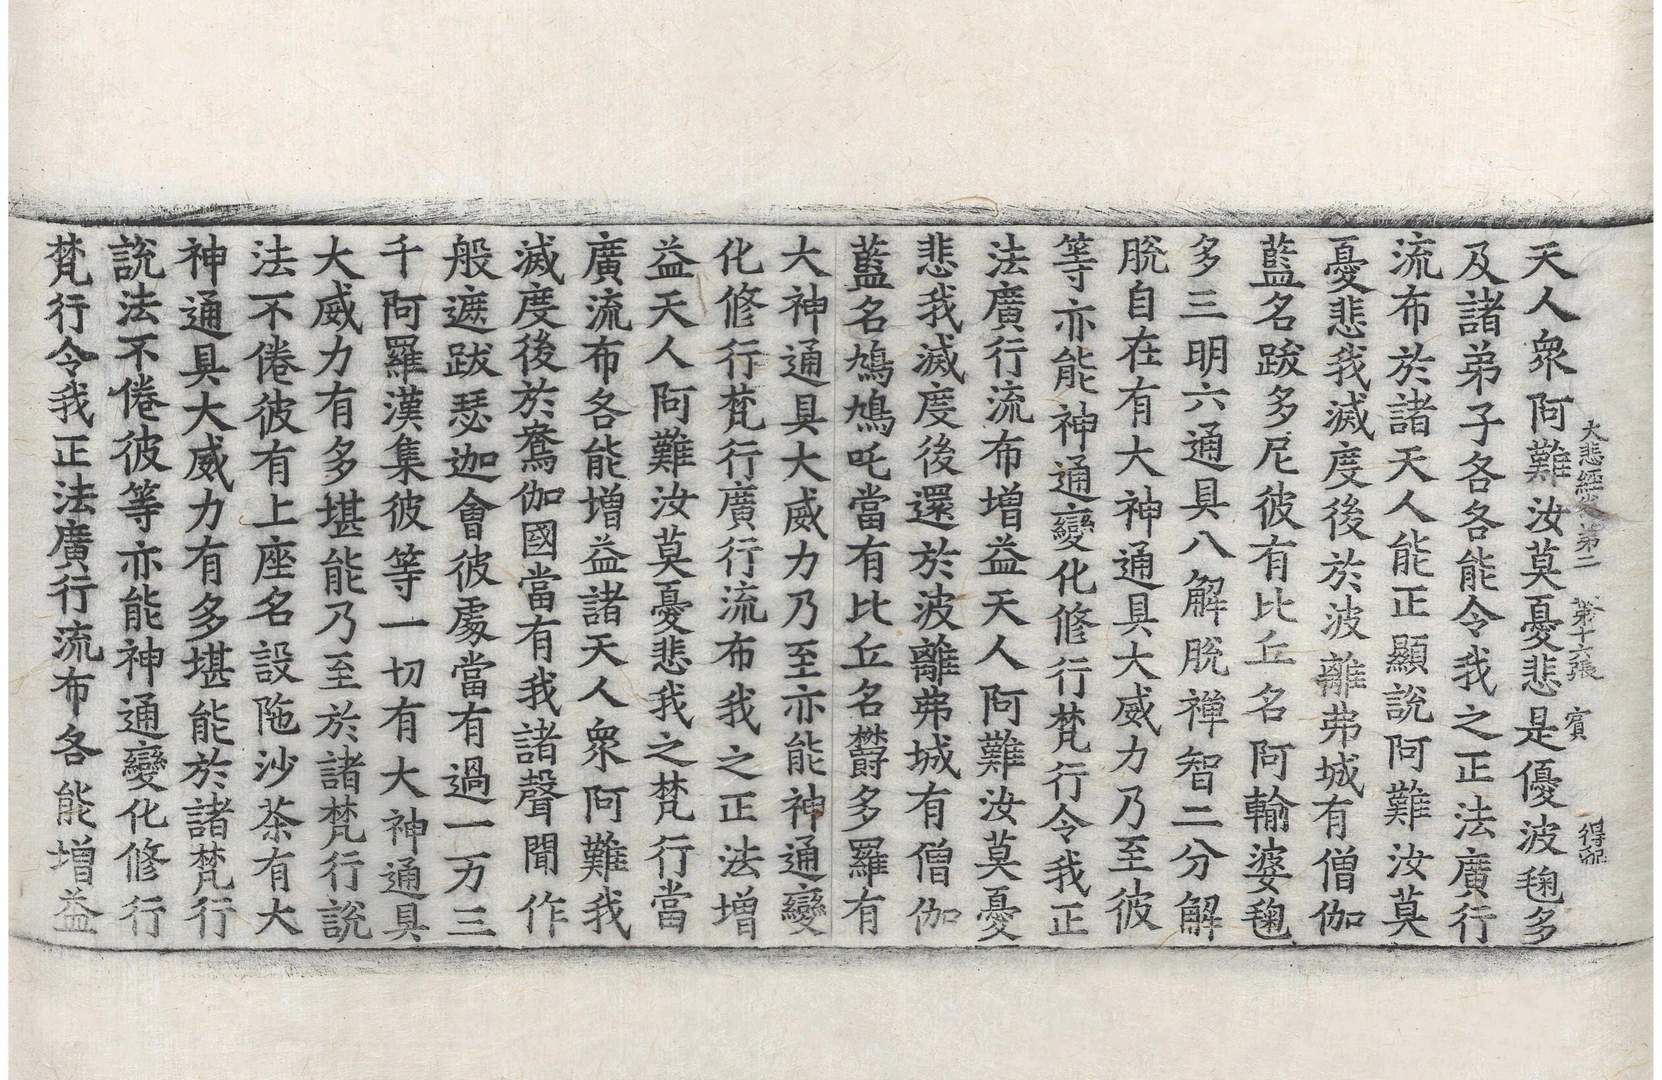 大悲經卷第二 第十六張 賓 得
天人衆阿難汝莫憂悲是優波毱多
及諸弟子各各能令我之正法廣行
流布於諸天人能正顯說阿難汝莫
憂悲我滅度後於波離弗城有僧伽
藍名跋多尼彼有比丘名阿輸婆毱
多三明六通具八解脫禪智二分解
脫自在有大神通具大威力乃至彼
等亦能神通變化修行梵行令我正
法廣行流布增益天人阿難汝莫憂
悲我滅度後還於波離弗城有僧伽
藍名鳩鳩吒當有比丘名欝多羅有
大神通具大威力乃至亦能神通變
化修行梵行廣行流布我之正法增
益天人阿難汝莫憂悲我之梵行當
廣流布各能增益諸天人衆阿難我
滅度後於鴦伽國當有我諸聲聞作
般遮跋瑟迦會彼處當有過一万三
千阿羅漢集彼等一切有大神通具
大威力有多堪能乃至於諸梵行說
法不倦彼有上座名設陁沙荼有大
神通具大威力有多堪能於諸梵行
說法不倦彼等亦能神通變化修行
梵行令我正法廣行流布各能增益